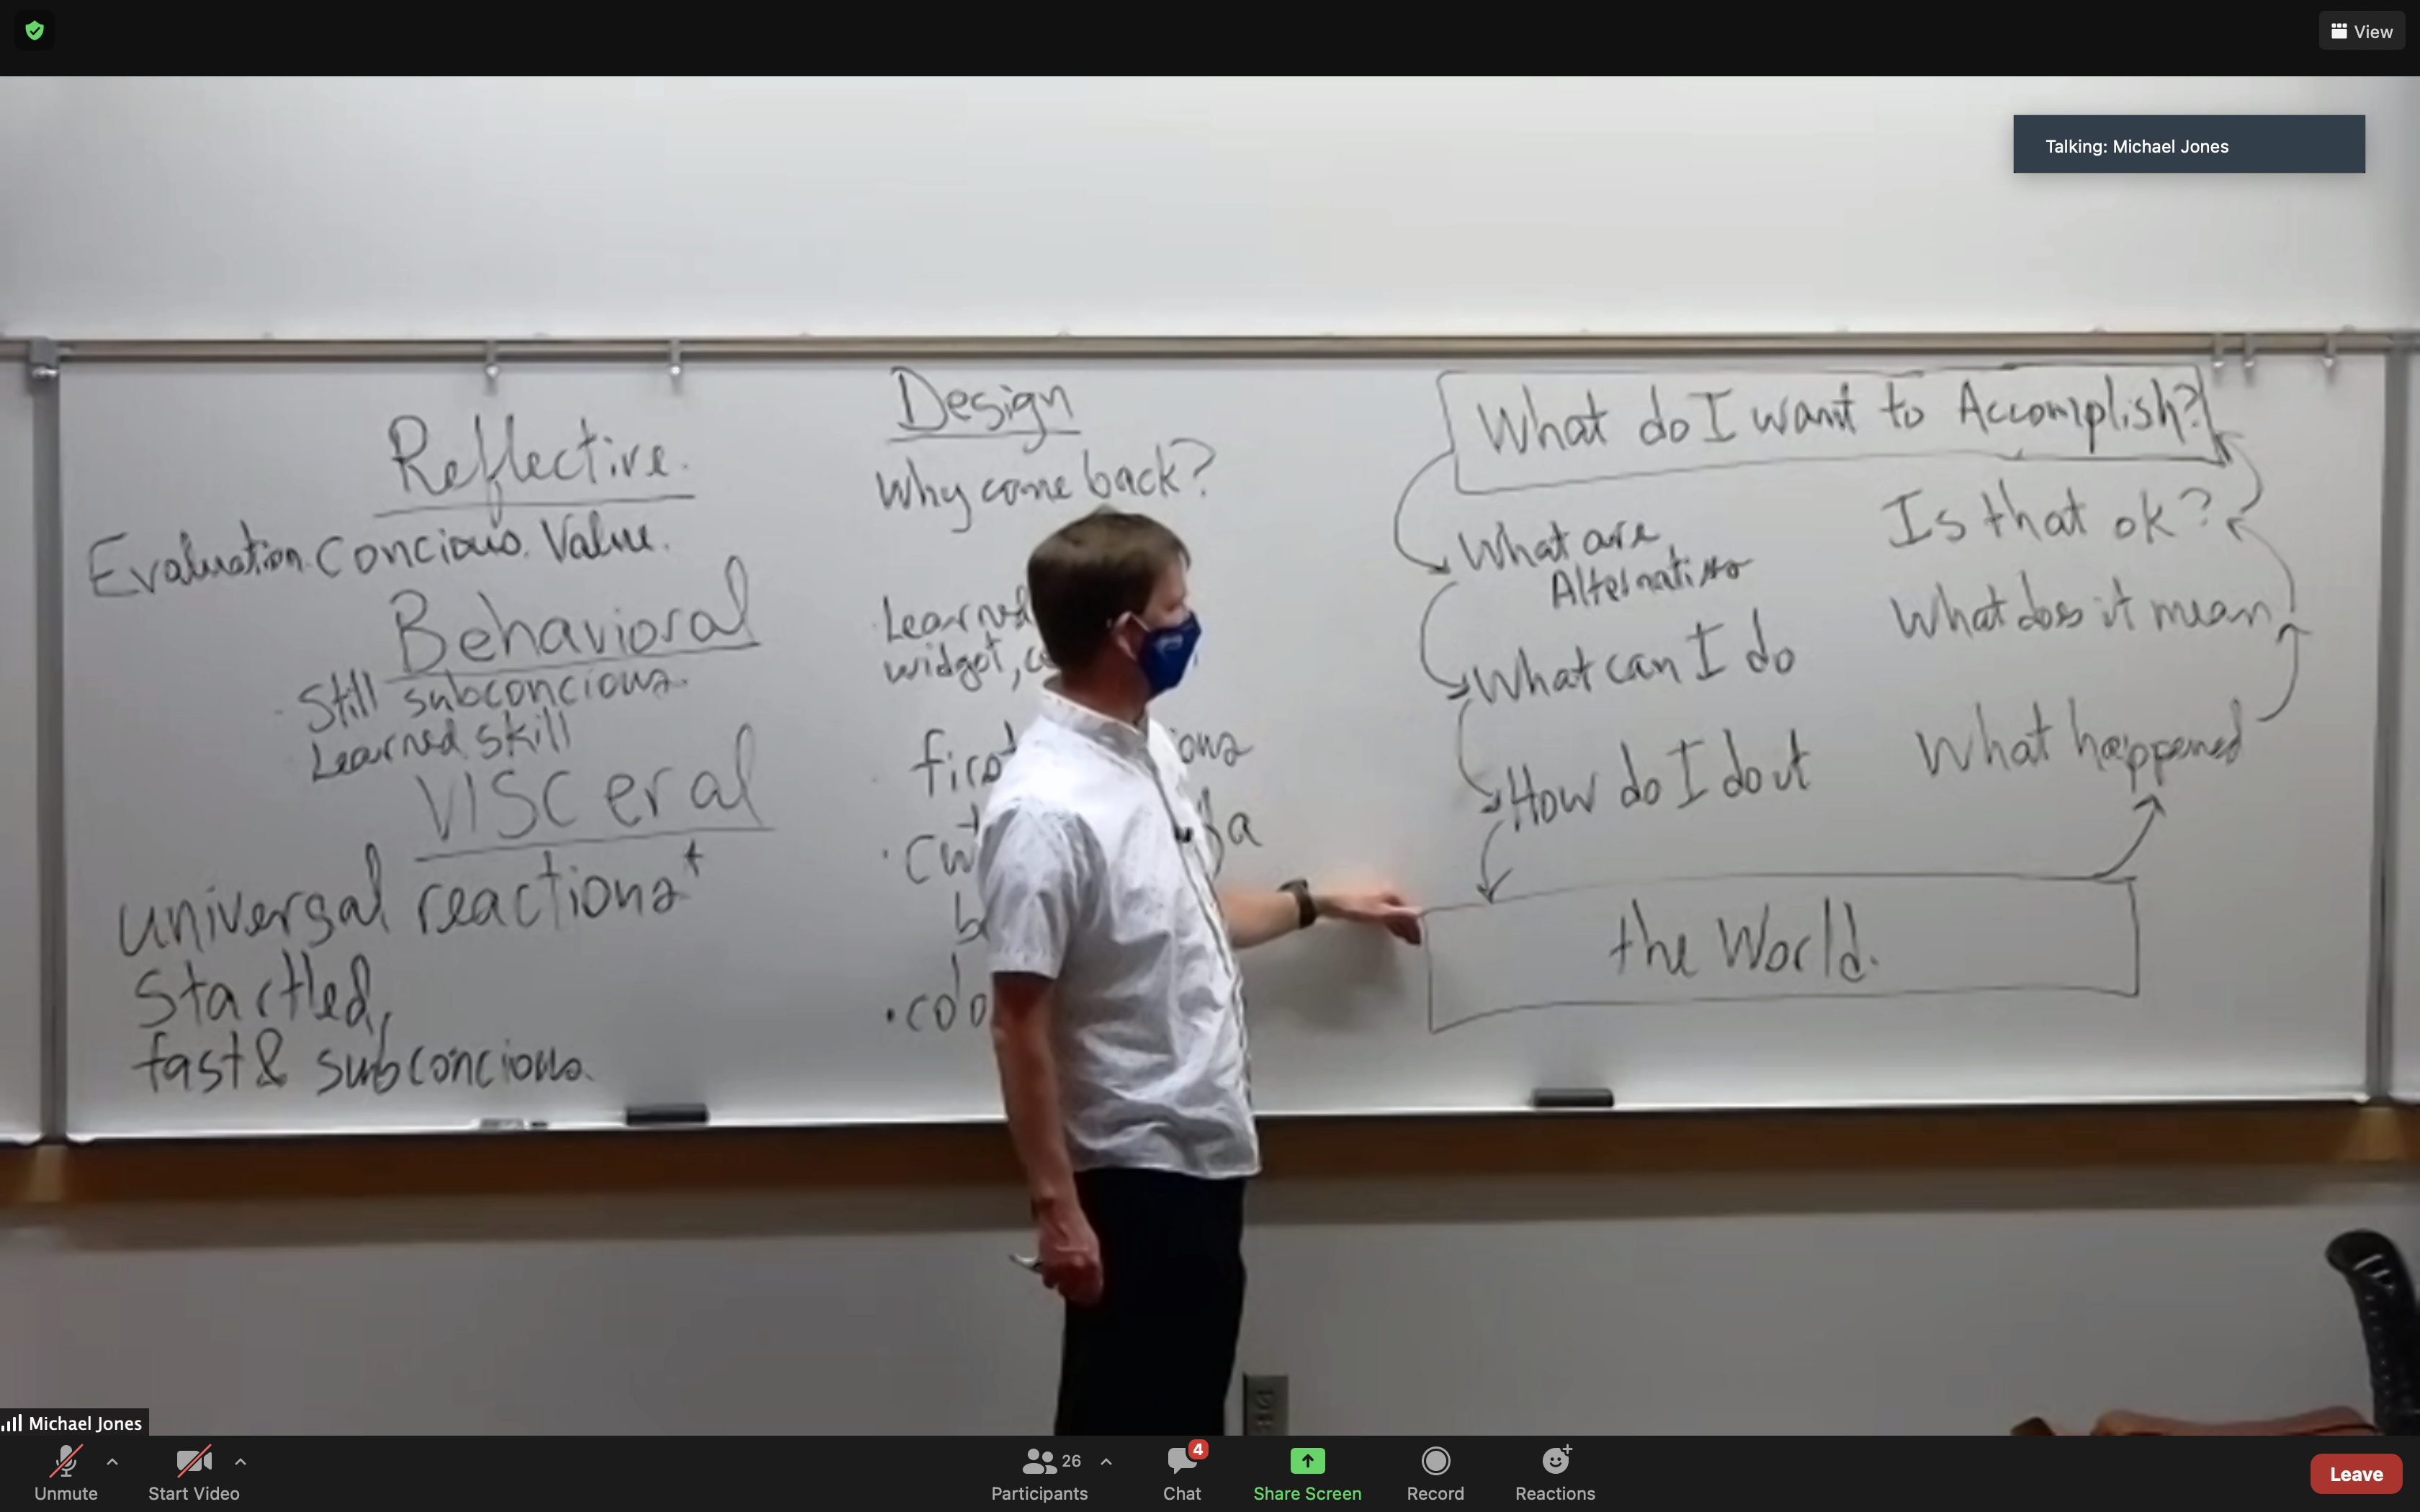 View
Talking: Michael Jones
Reflective.
Evaluation. Concious. Value.
Behavioral
Still subconcious.
Learned skill
VISCeral
universal reactions*
Startled,
fast & subconcious.
Design
Why come back?
Learned
widget,
first
What do I want to Accomplish?
What are
Alternatives
What can I do
How do I do it
the World.
What happened
What does it mean
Is that ok?
Michael Jones
Unmute
Start Video
26
Participants
4
Chat
Share Screen
Record
Reactions
Leave